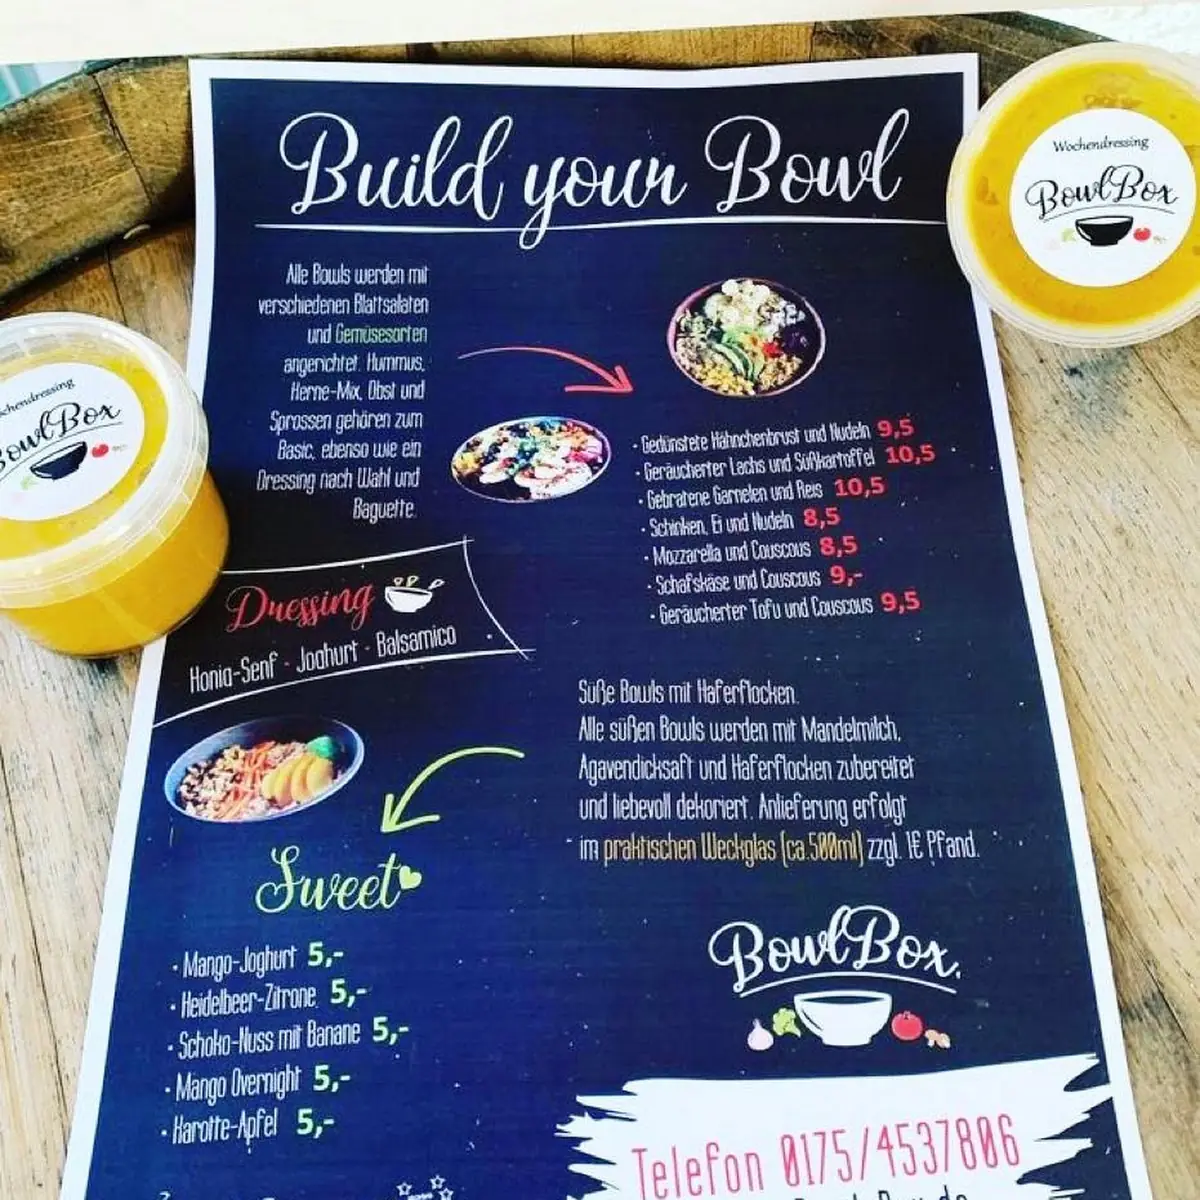 Build your Bowl
Wochendressing
BowlBox
Alle Bowls werden mit
verschiedenen Blattsalaten
und Gemüsesorten
angerichtet. Hummus,
Kerne-Mix, Obst und
Sprossen gehören zum
Basic, ebenso wie ein
Dressing nach Wahl und
Baguette.
· Gedünstete Hähnchenbrust und Nudeln 9,5
· Geräucherter Lachs und Süßkartoffel 10,5
· Gebratene Garnelen und Reis 10,5
· Schinken, Ei und Nudeln 8,5
· Mozzarella und Couscous 8,5
· Schafskäse und Couscous 9,-
· Geräucherter Tofu und Couscous 9,5
chendressing
BowlBox
Dressing
Honig-Senf · Joghurt · Balsamico
Süße Bowls mit Haferflocken.
Alle süßen Bowls werden mit Mandelmilch,
Agavendicksaft und Haferflocken zubereitet
und liebevoll dekoriert. Anlieferung erfolgt
im praktischen Weckglas (ca.500ml) zzgl. 1€ Pfand.
Sweet
· Mango-Joghurt 5,-
· Heidelbeer-Zitrone 5,-
· Schoko-Nuss mit Banane 5,-
· Mango Overnight 5,-
· Karotte-Apfel 5,-
BowlBox
Telefon 0175/4537806